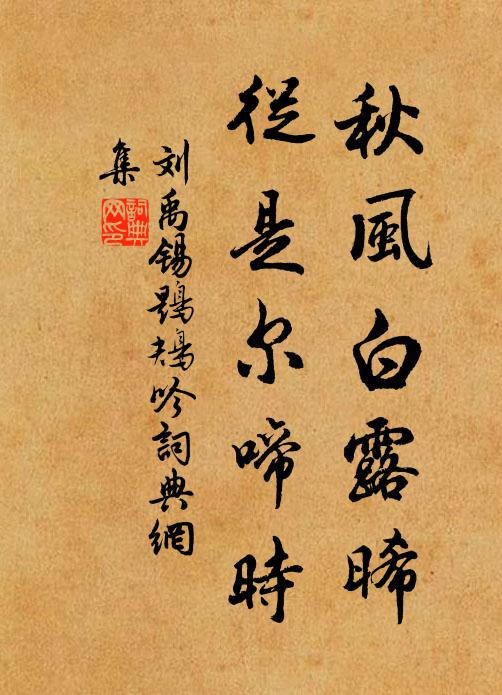 秋風白露晞
從是尔啼時
刘禹锡鶗鴂吟詞典網
集
詞典网印